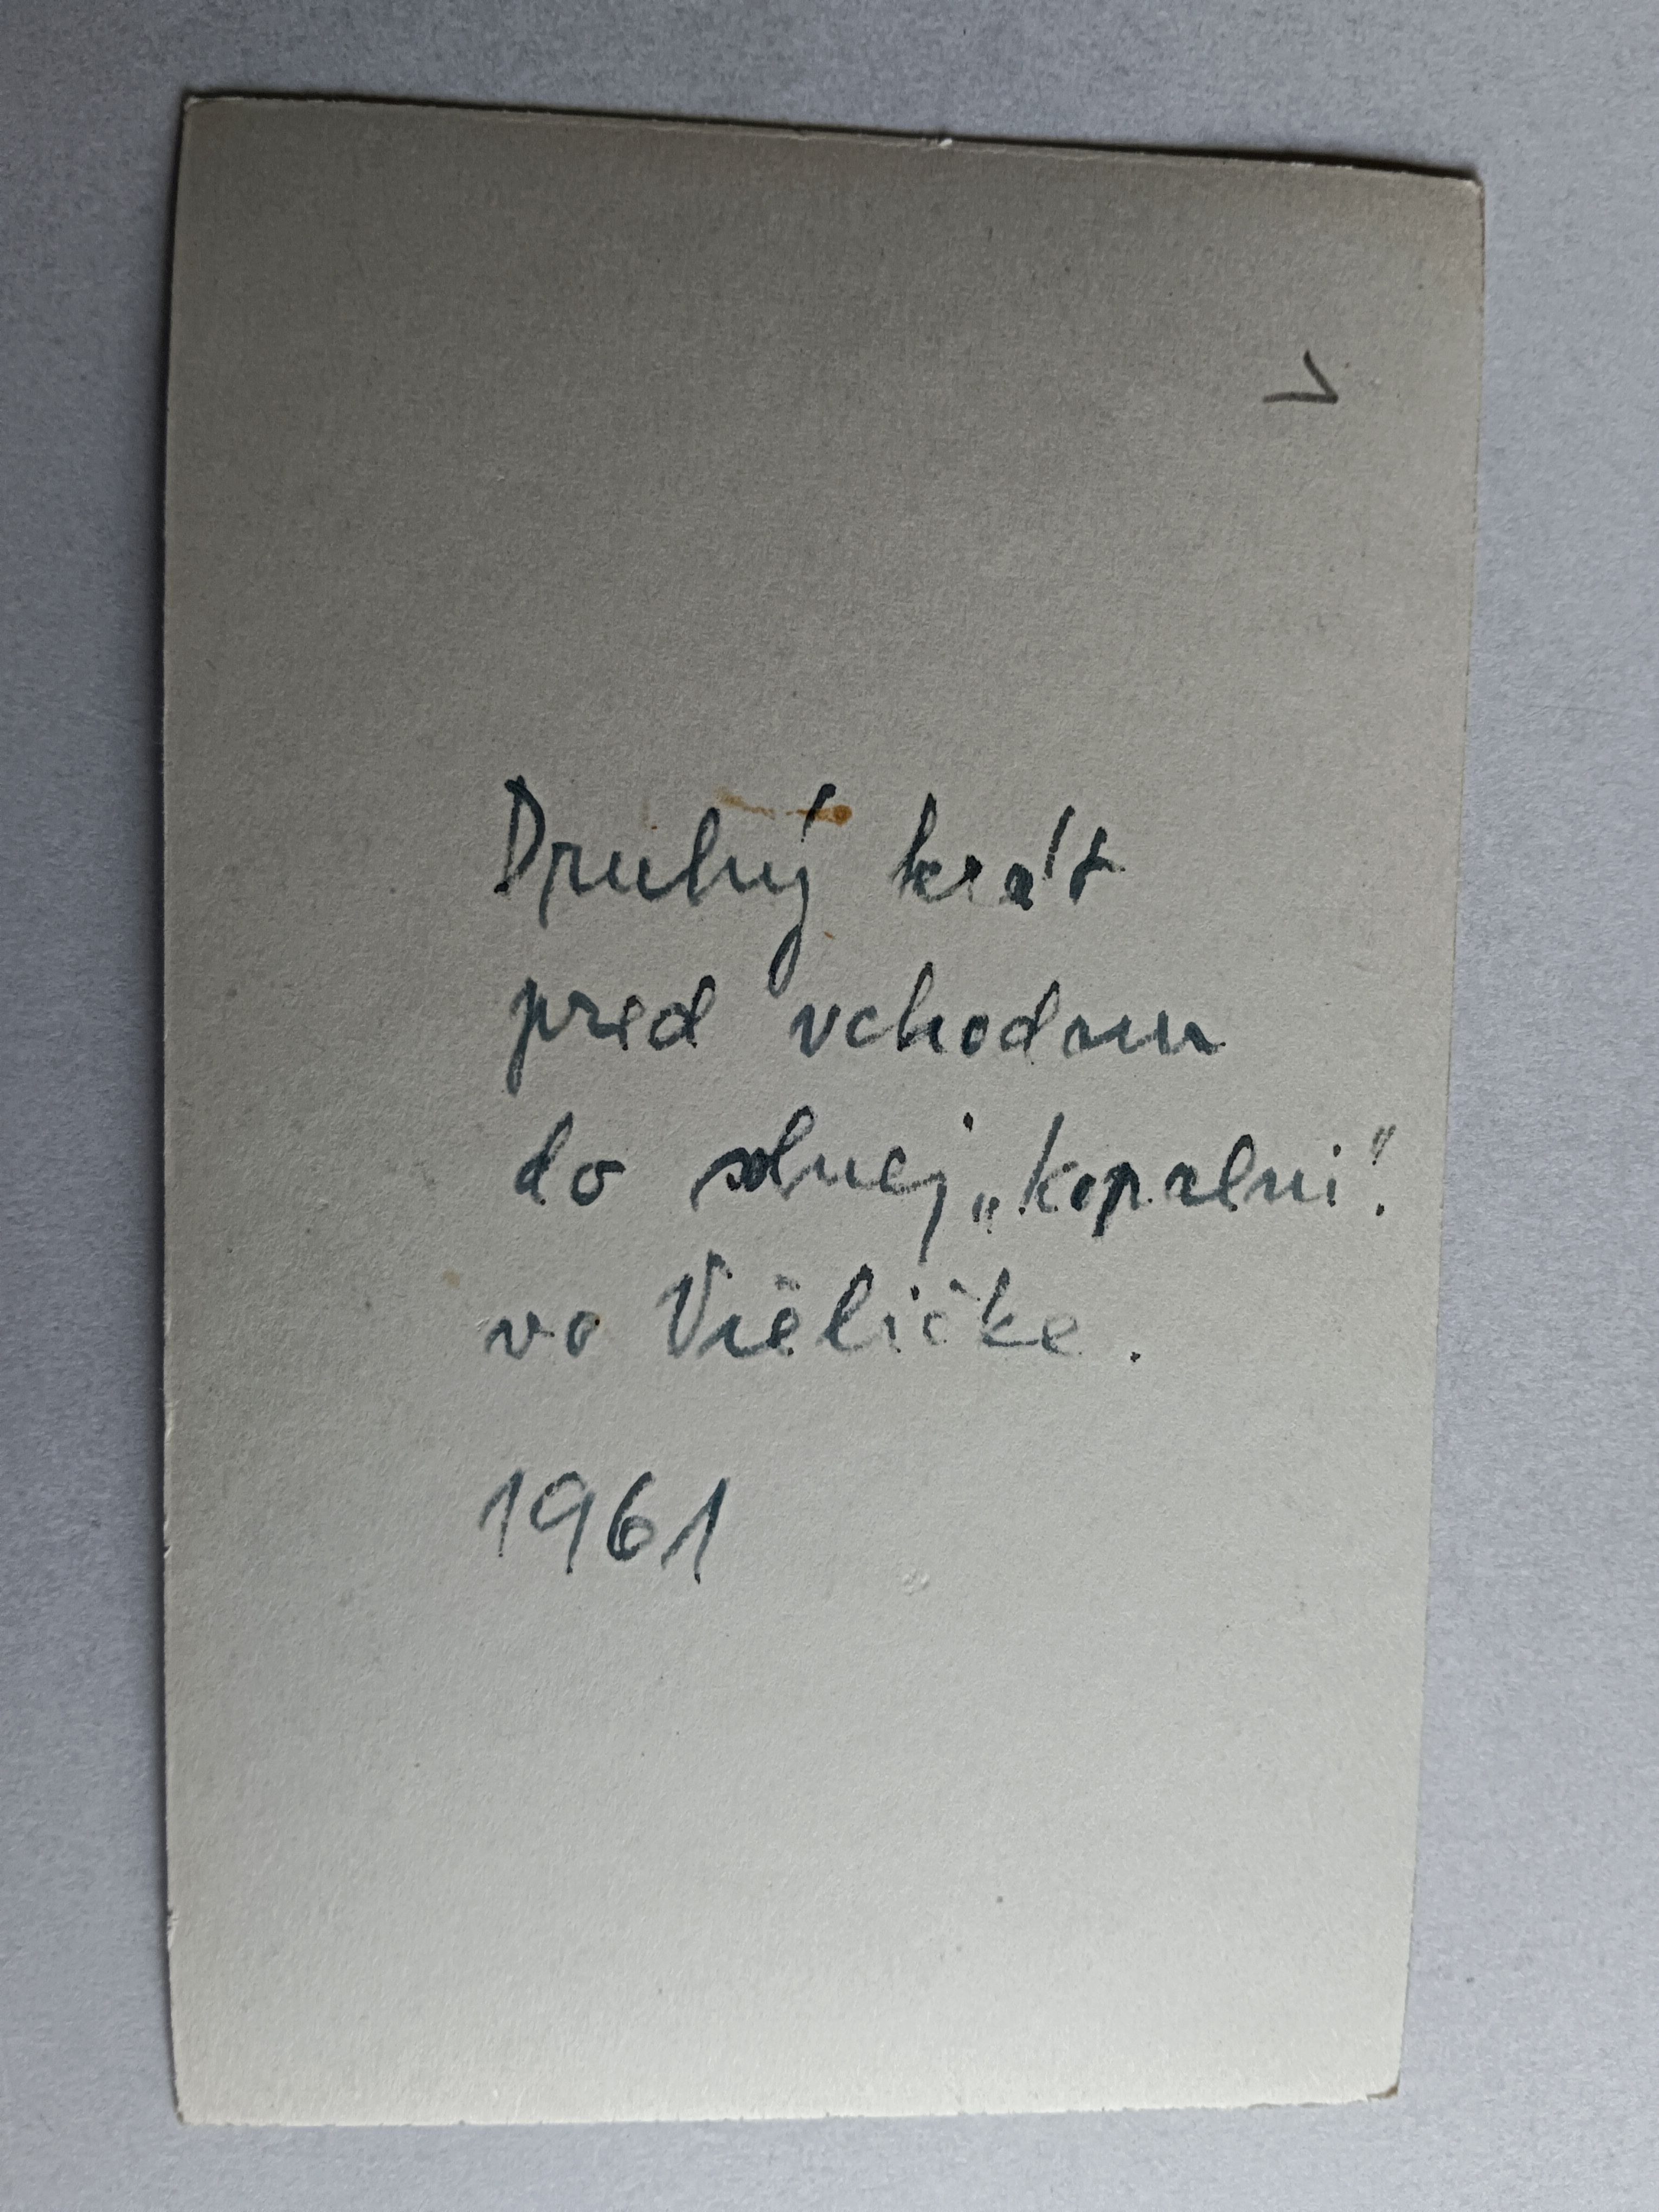 Druhý krát
pred vchodom
do solnej „kopalni".
vo Vieličke.
1961